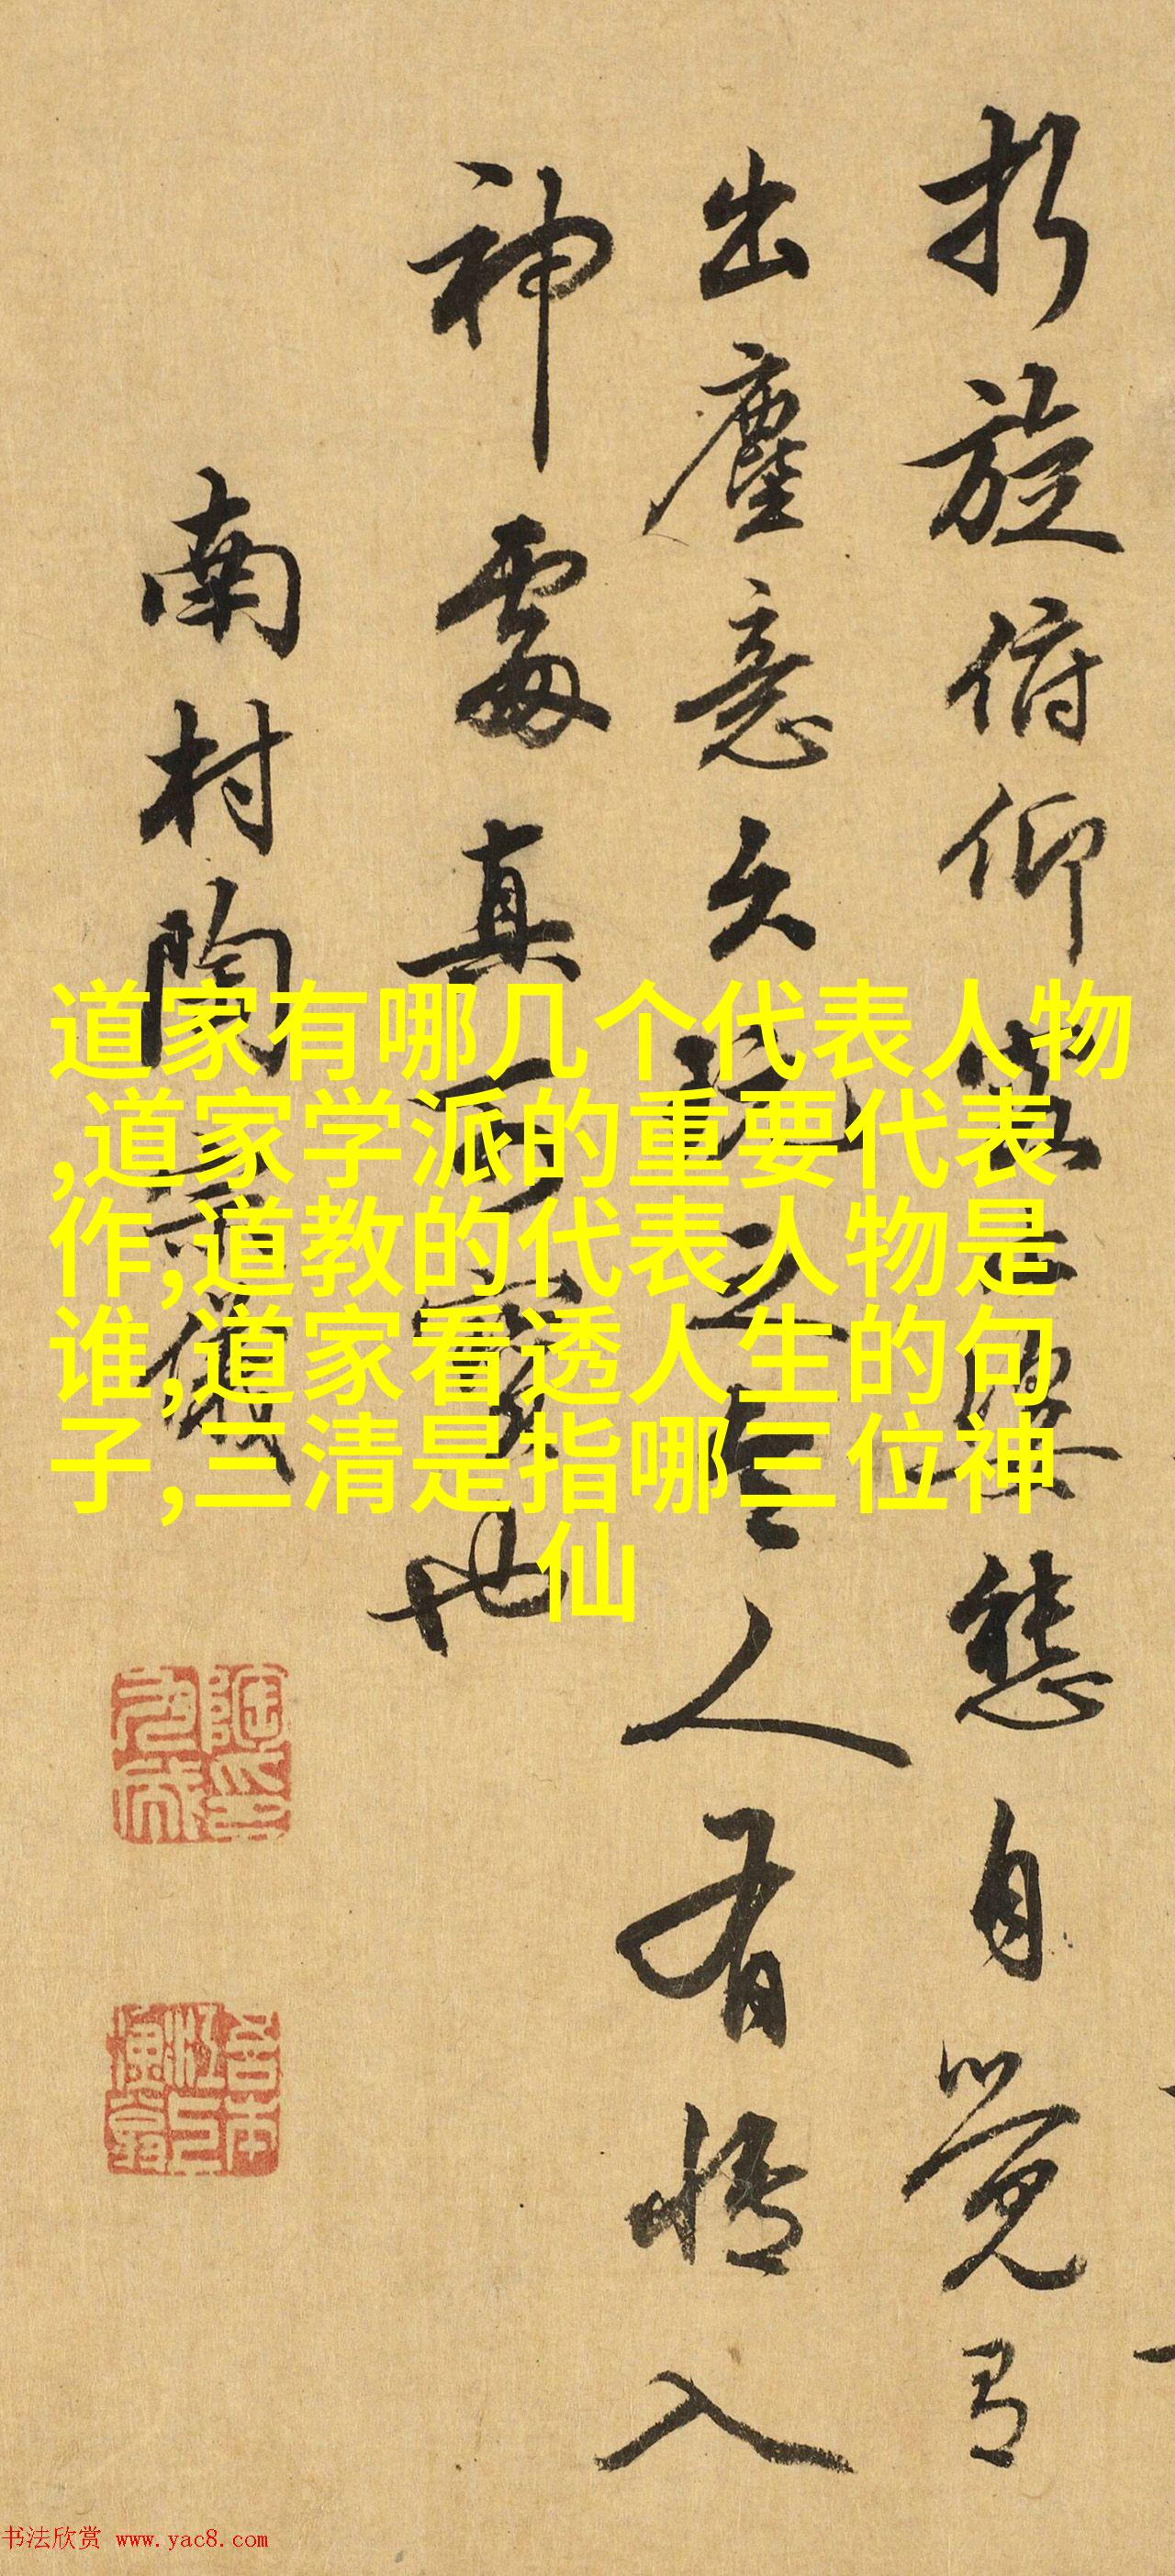 折旋俯仰
態自覺有
出塵意久
之令人有情入
神處真可寶也
南村陶宗儀
道家有哪几个代表人物
,道家学派的重要代表
作,道教的代表人物是
谁,道家看透人生的句
子,三清是指哪三位神
仙
书法欣赏 www.yac8.com